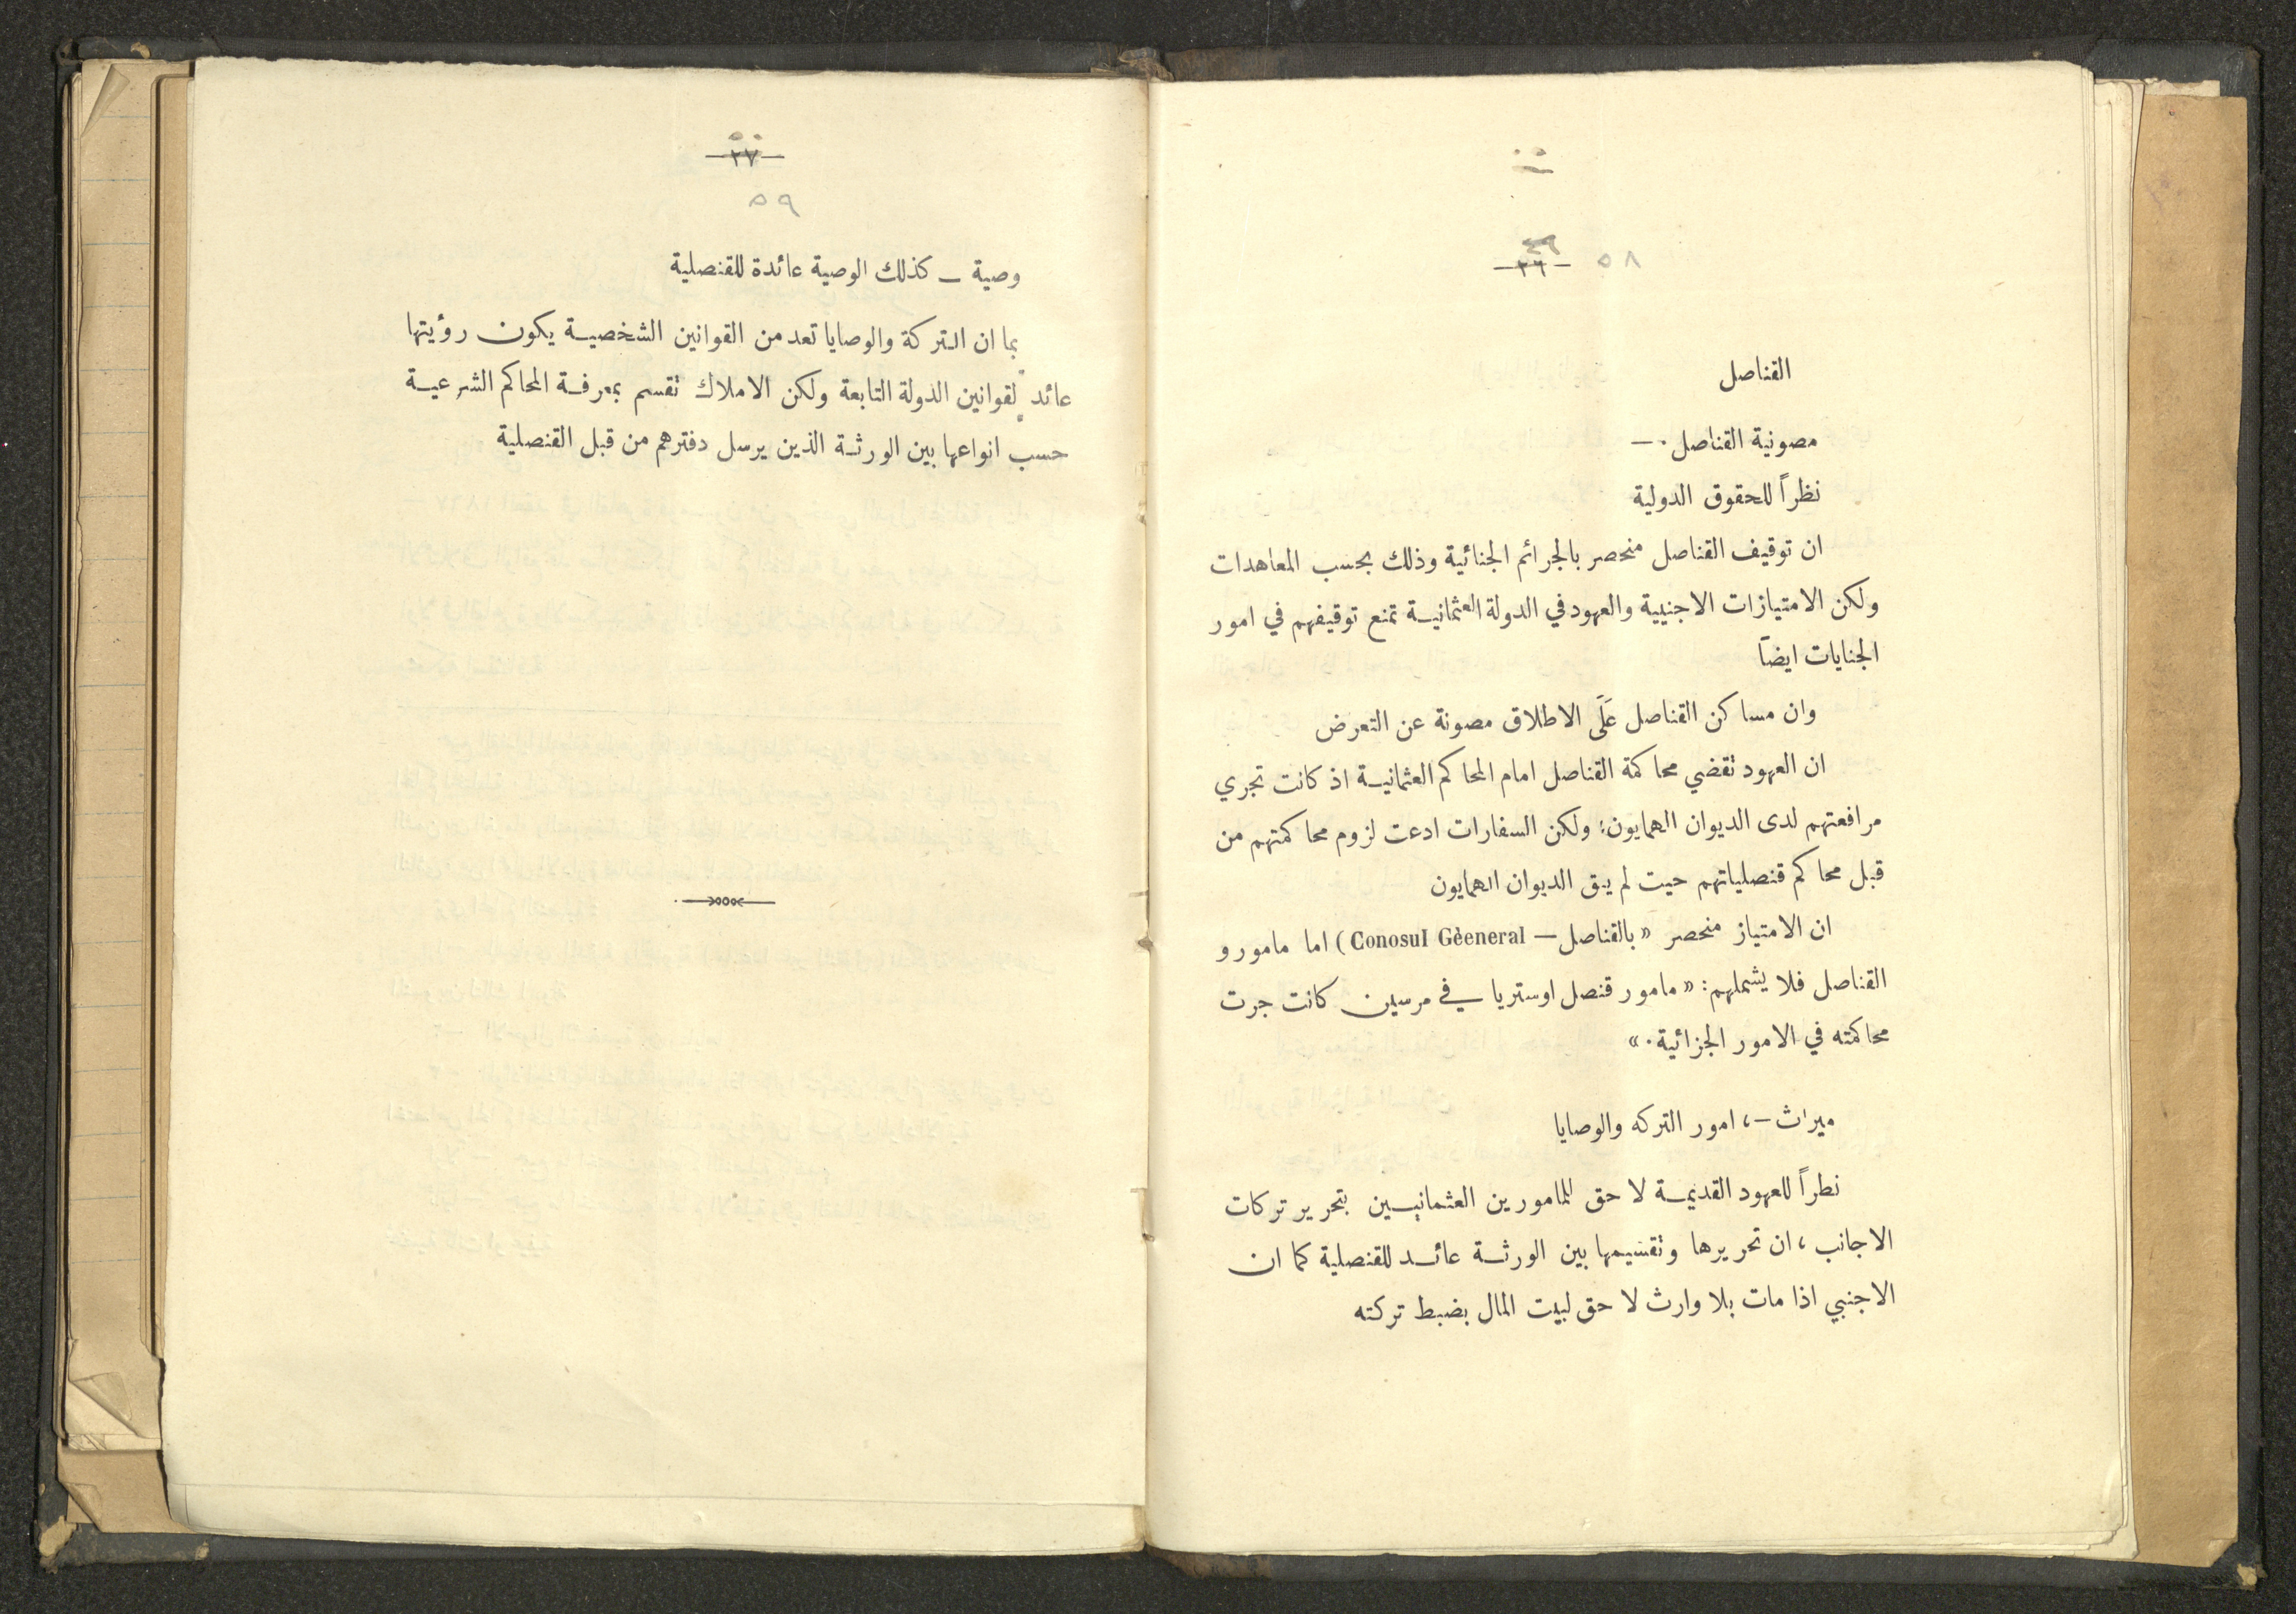 ٥٨
٤٩
-٢٦-
القناصل
مصونية القناصل ٠—
نظراً للحقوق الدولية
ان توقيف القناصل منحصر بالجرائم الجنائية وذلك بحسب المعاهدات
ولكن الامتيازات الاجنبية والعهود في الدولة العثمانية تمنع توقيفهم في امور
الجنايات ايضاً
وان مساكن القناصل عَلَى الاطلاق مصونة عن التعرض
ان العهود تقضي محاكمة القناصل امام المحاكم العثمانية اذ كانت تجري
مرافعتهم لدى الديوان الهمايون؛ ولكن السفارات ادعت لزوم محاكمتهم من
قبل محاكم قنصلياتهم حيت لم يبق الديوان الهمايون
ان الامتياز منحصر «بالقناصل — Conosul Gèeneral) اما مامورو
القناصل فلا يشملهم: «مامور قنصل اوستريا في مرسين كانت جرت
محاكمته في الامور الجزائية٠»
ميراث —، امور التركه والوصايا
نطراً للعهود القديمة لا حق للمامورين العثمانيين بتحرير تركات
الاجانب، ان تحريرها وتقسيمها بين الورثة عائد للقنصلية كما ان
الاجنبي اذا مات بلا وارث لا حق لبيت المال بضبط تركته
٥٠
-٢٧-
٥٩
وصية — كذلك الوصية عائدة للقنصلية
بما ان التركة والوصايا تعد من القوانين الشخصية يكون رؤيتها
عائد لقوانين الدولة التابعة ولكن الاملاك تقسم بمعرفة المحاكم الشرعية
حسب انواعها بين الورثة الذين يرسل دفترهم من قبل القنصلية